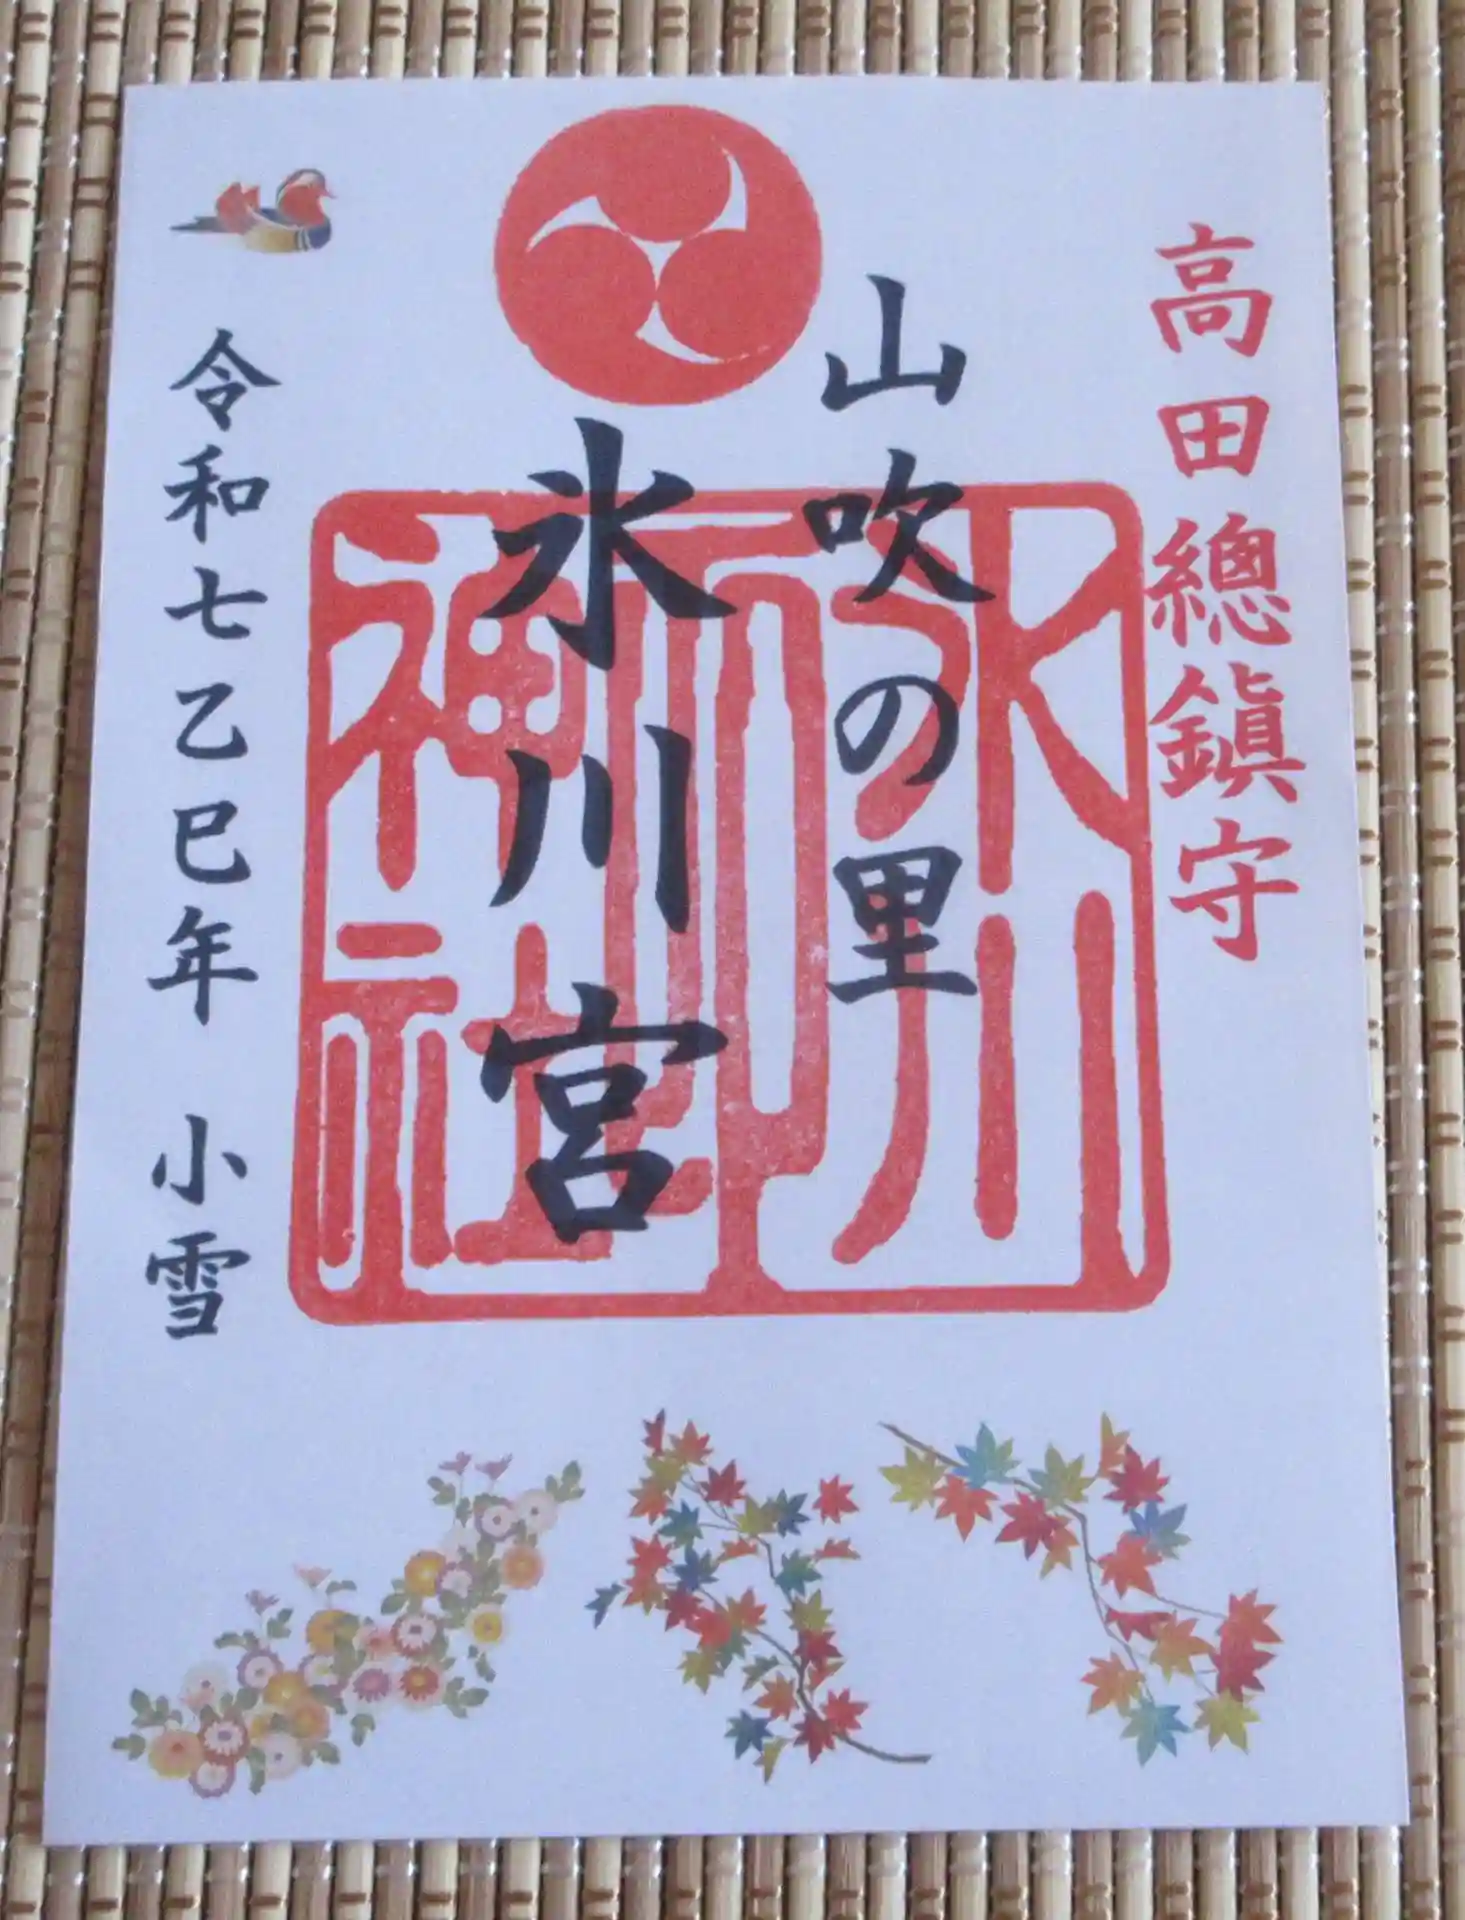 高田總鎭守
山吹の里
氷川宮
氷川
神社
令和七乙巳年 小雪